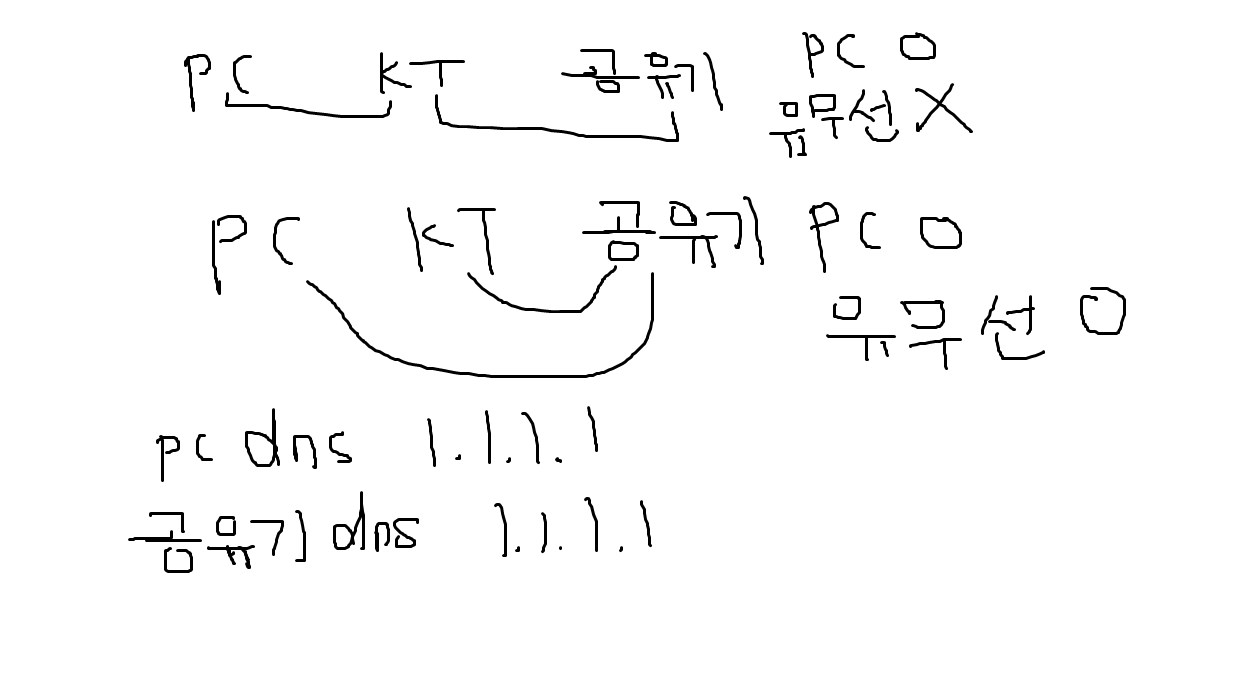 PC KT 공유기 PC O
유무선 X
PC KT 공유기 PC O
유무선 O
pc dns 1.1.1.1
공유기 dns 1.1.1.1